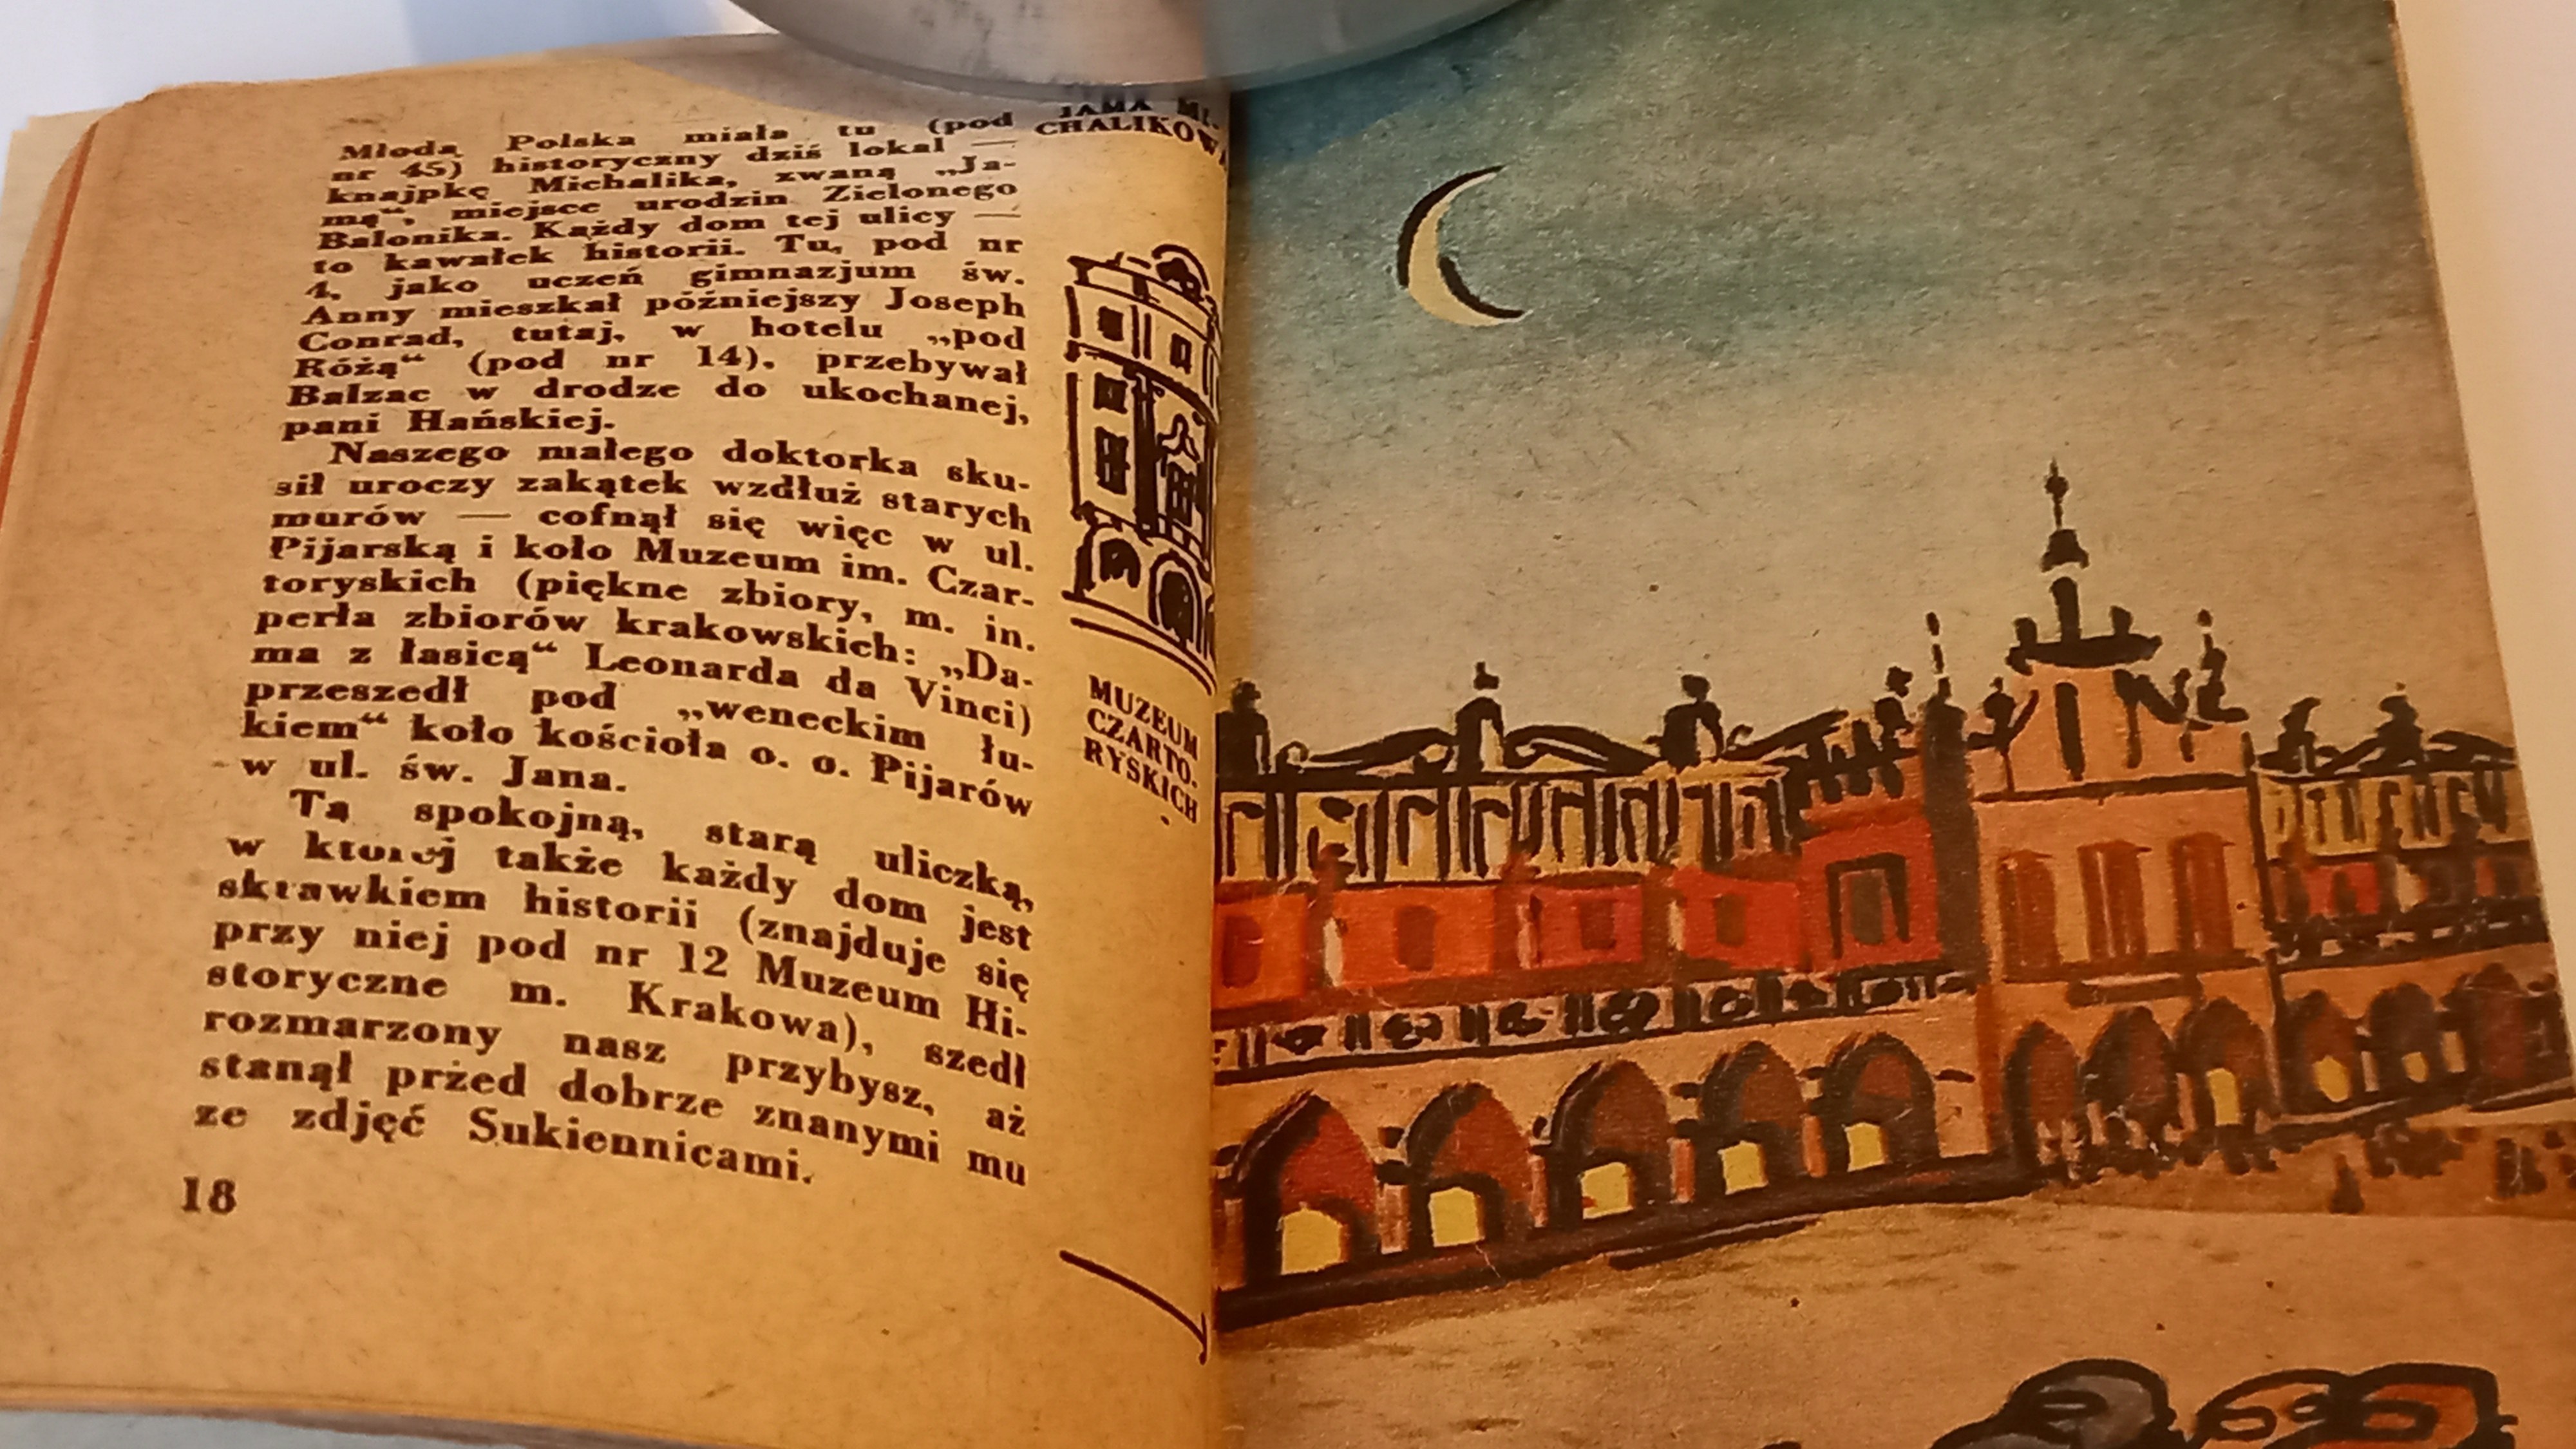 JAMA MI-
CHALIKOWA
Młoda Polska miała tu (pod
nr 45) historyczny dziś lokal —
knajpkę Michalika, zwaną „Ja-
mą“, miejsce urodzin Zielonego
Balonika. Każdy dom tej ulicy —
to kawałek historii. Tu, pod nr
4, jako uczeń gimnazjum św.
Anny mieszkał późniejszy Joseph
Conrad, tutaj, w hotelu „pod
Różą“ (pod nr 14), przebywał
Balzac w drodze do ukochanej,
pani Hańskiej.
Naszego małego doktorka sku-
sił uroczy zakątek wzdłuż starych
murów — cofnął się więc w ul.
Pijarską i koło Muzeum im. Czar-
toryskich (piękne zbiory, m. in.
perła zbiorów krakowskich: „Da-
ma z łasicą“ Leonarda da Vinci)
przeszedł pod „weneckim łu-
kiem“ koło kościoła o. o. Pijarów
w ul. św. Jana.
Tą spokojną, starą uliczką,
w której także każdy dom jest
skrawkiem historii (znajduje się
przy niej pod nr 12 Muzeum Hi-
storyczne m. Krakowa), szedł
rozmarzony nasz przybysz, aż
stanął przed dobrze znanymi mu
ze zdjęć Sukiennicami.
MUZEUM
CZARTO-
RYSKICH
18